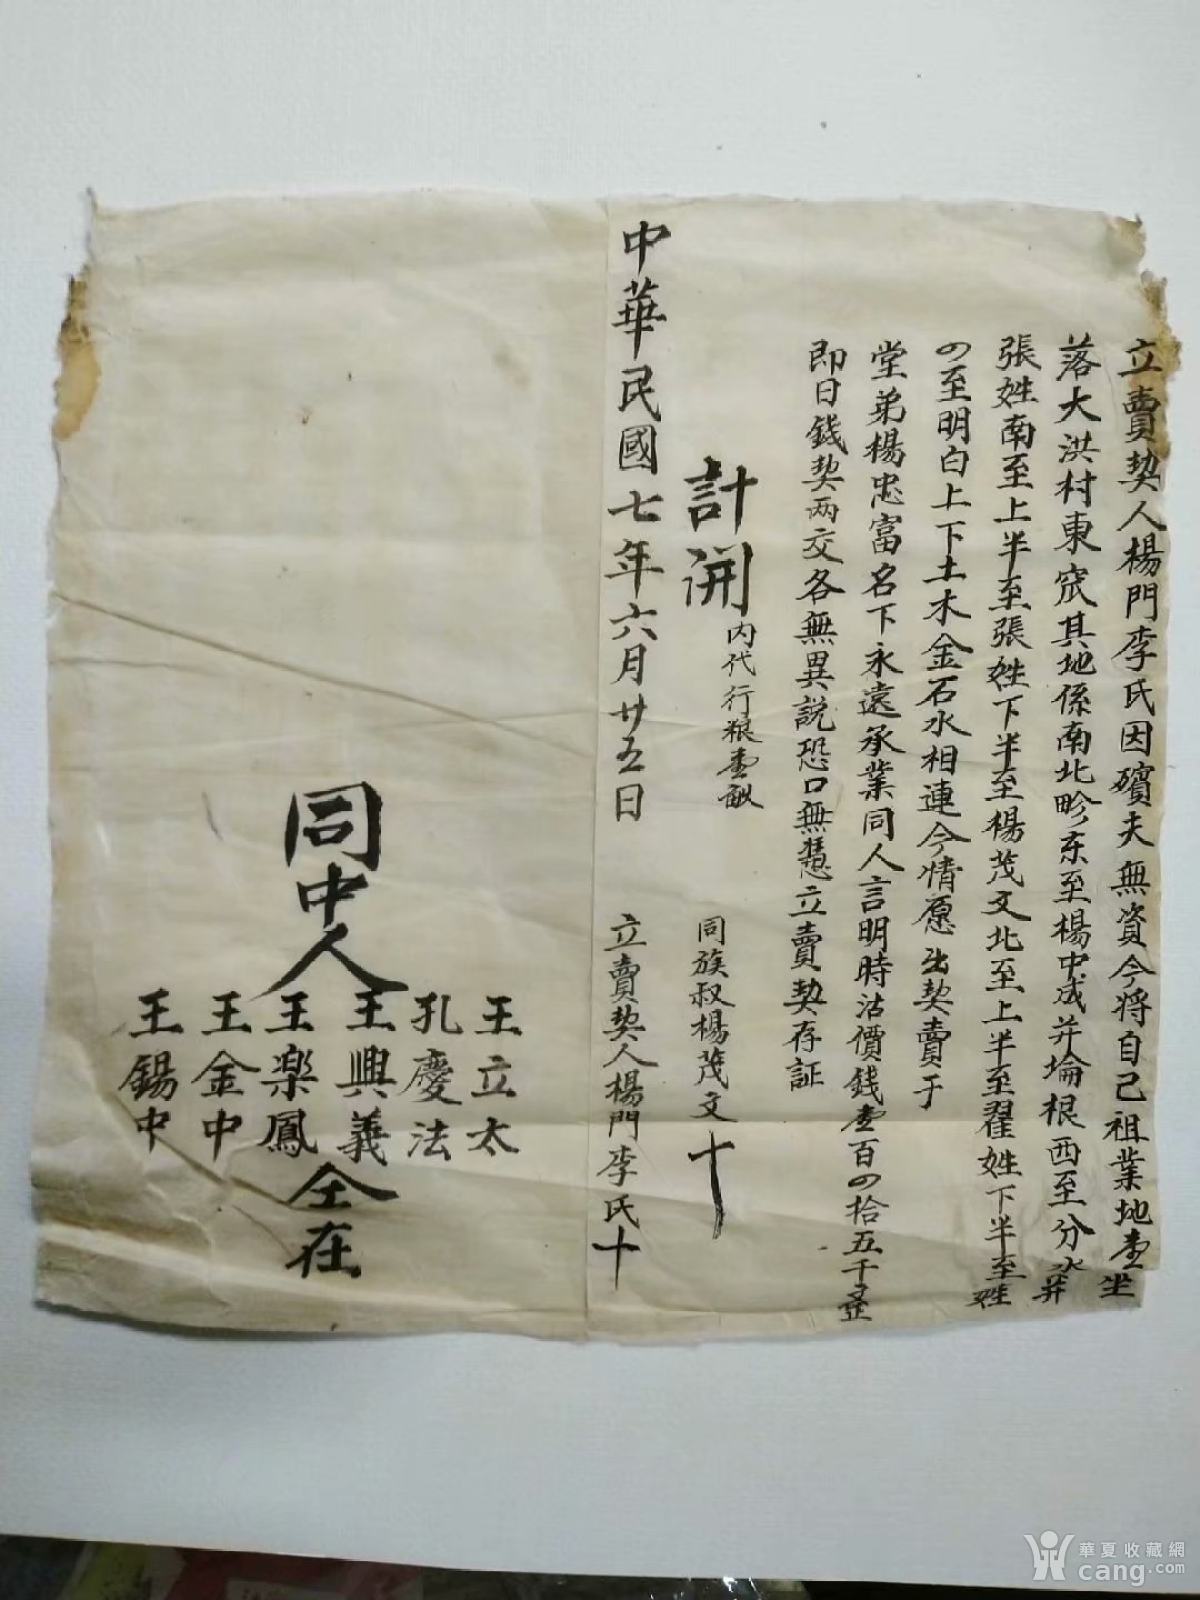 立賣契人楊門李氏因殯夫無資今將自己祖業地壹坐
落大洪村東窊其地係南北畛东至楊中成并埨根西至分水并
張姓南至上半至張姓下半至楊茂文北至上半至翟姓下半至姓
四至明白上下土木金石水相連今情愿出契賣于
堂弟楊忠富名下永遠承業同人言明時沽價錢壹百四拾五千㱏
即日錢契两交各無異説恐口無慿立賣契存証
計開
内代行粮壹畝
同族叔楊茂文十
中華民國七年六月廿五日
立賣契人楊門李氏十
同中人
王立太
孔慶法
王興義
王楽鳳
王金中
王錫中
仝在
華夏收藏網
cang.com